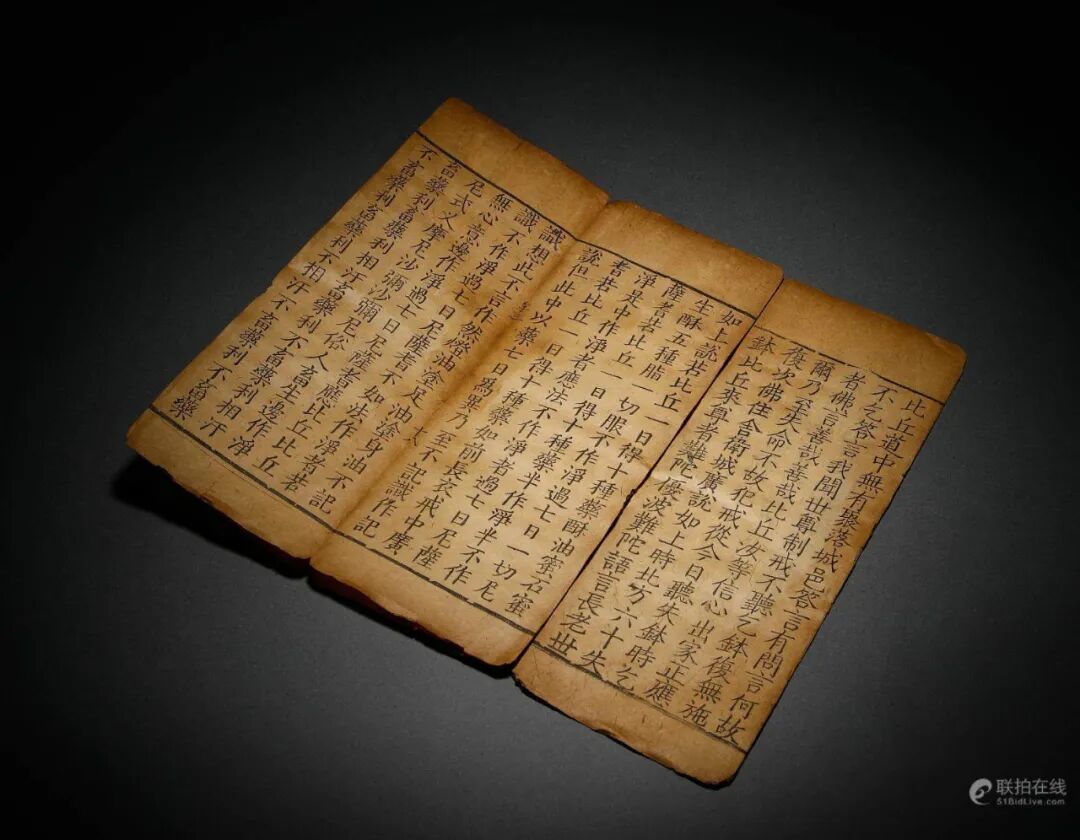 比丘道中無有聚落城邑答言有問言何故
不乞答言我聞世尊制戒不聽乞鉢復無施
者佛言善哉善哉比丘汝等信心出家正應
爾乃至失命不故犯戒從今日聽失鉢時乞
復次佛住舍衛城廣說如上時北方六十失
鉢比丘來尊者難陀優波難陀語言長老世
如上說若比丘一日得十種藥酥油蜜石蜜
生酥五種脂一切服不作淨過七日一切尼
薩耆若比丘一日得十種藥半作淨半不作
淨是中作淨者應法不作淨者過七日尼薩
耆若比丘一日得十種藥如前長衣戒中廣
說但此中以藥七日爲異乃至不記識作記
識想此不言作然燈油塗足油塗身不記
識不作淨過七日尼薩耆不如法作淨者
無心意邊作淨過七日尼薩耆
尼式叉摩尼沙彌沙彌尼俗人畜生邊作淨
畜藥利畜藥利相汙畜藥利不畜藥利相汙
不畜藥利畜藥利不相汙不畜藥
联拍在线
51BidLive.com